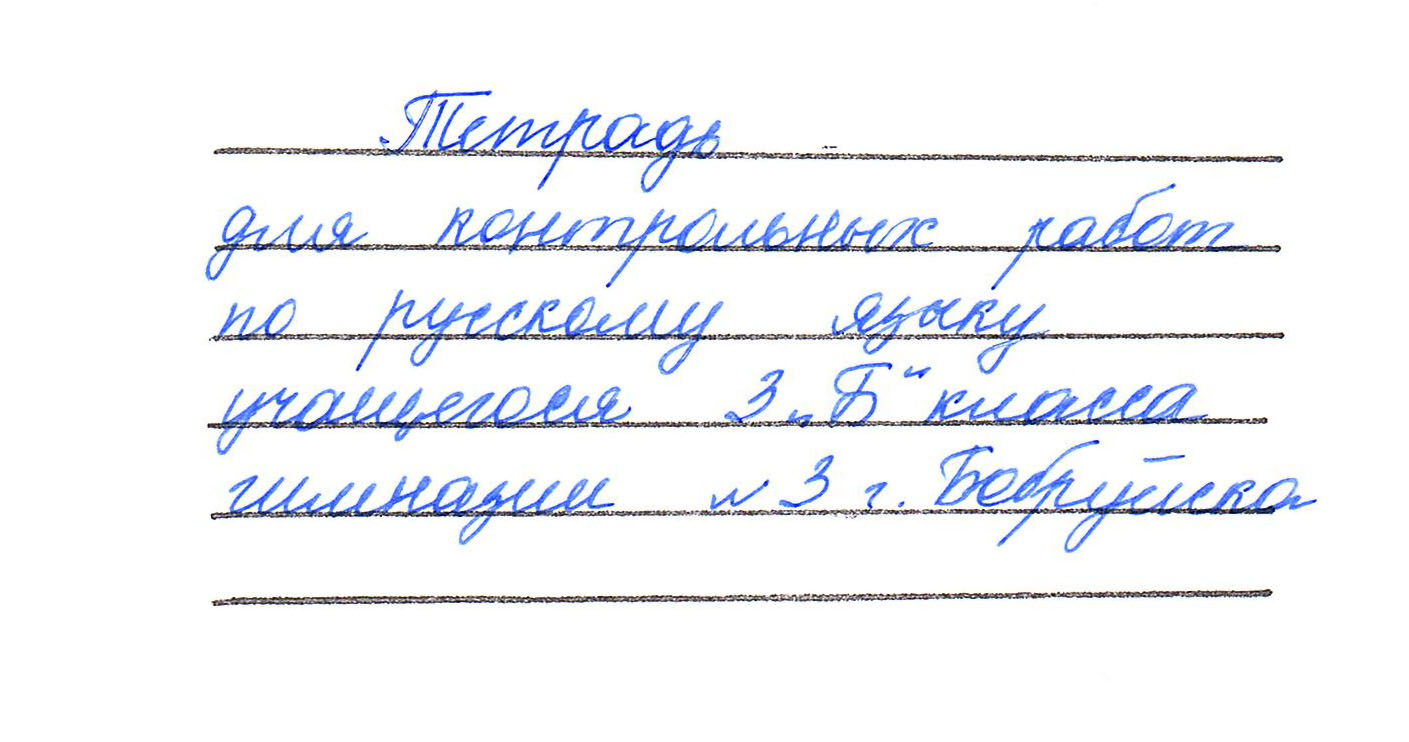 Тетрадь
для контрольных работ
по русскому языку
учащегося 3 „Б“ класса
гимназии № 3 г. Бобруйска